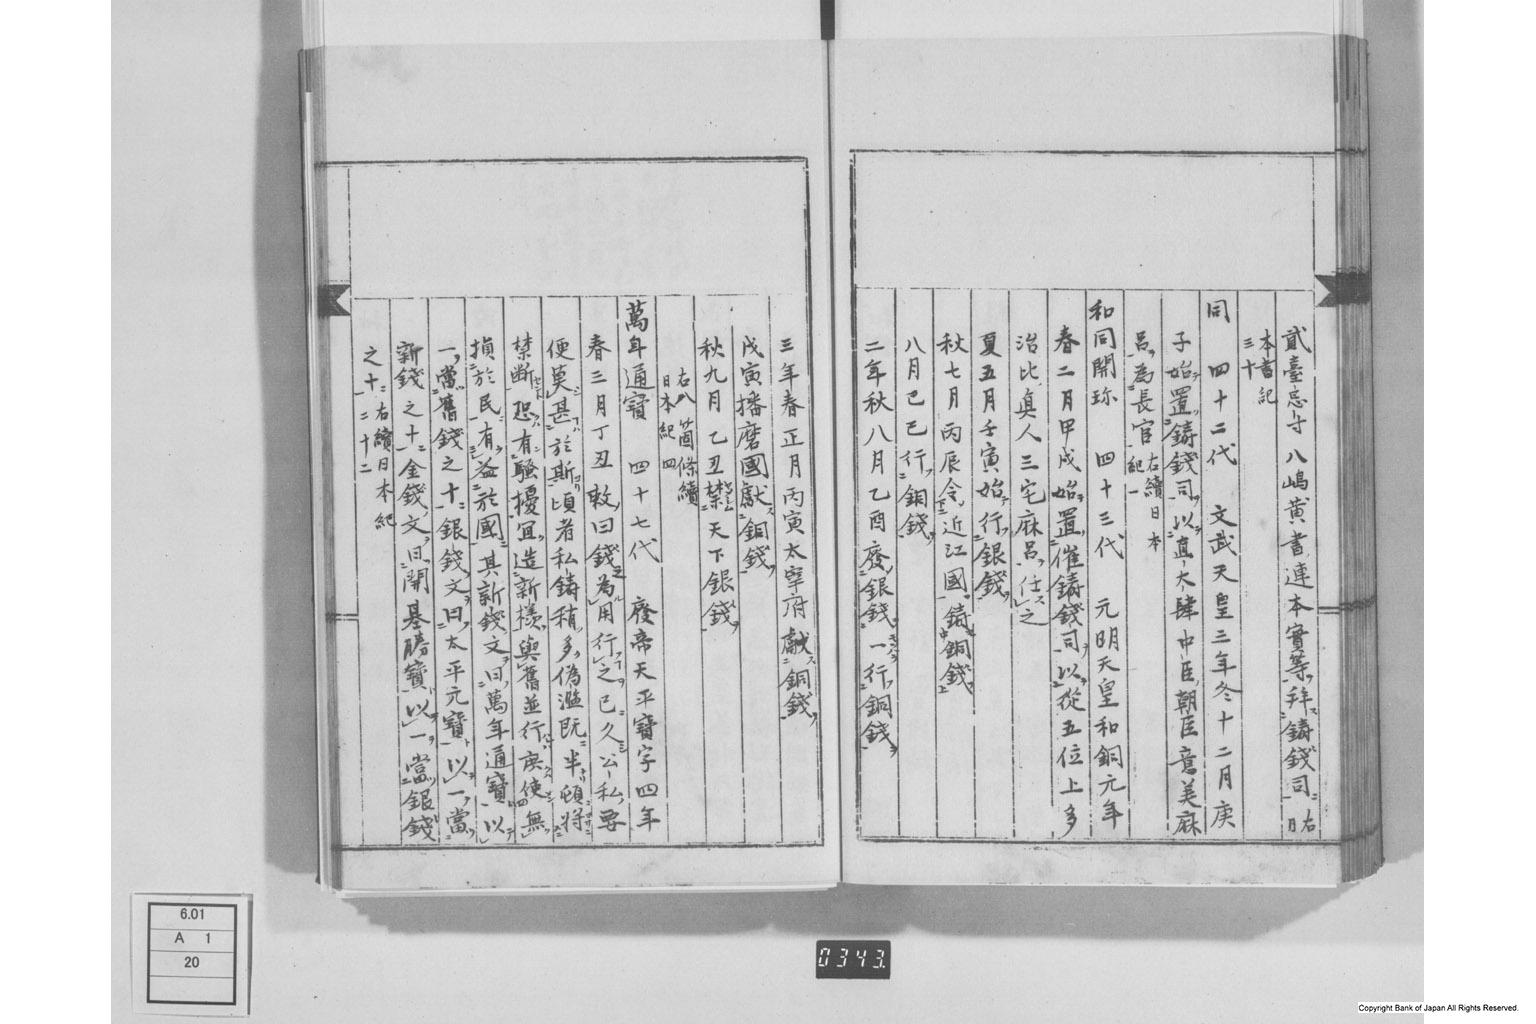 貳臺忌寸八嶋黄書連本實等拜鑄錢司右日
本書記
三十
同　四十二代　文武天皇三年冬十二月庚
子始置鑄錢司以直大肆中臣朝臣意美麻
呂為長官右續日本
紀一
和同開珎　四十三代　元明天皇和銅元年
春二月甲戌始置催鑄錢司以從五位上多
治比真人三宅麻呂任之
夏五月壬寅始行銀錢
秋七月丙辰令近江國鑄銅錢
八月己巳行銅錢
二年秋八月乙酉廢銀錢一行銅錢
三年春正月丙寅太宰府獻銅錢
戊寅播磨國獻銅錢
秋九月乙丑禁天下銀錢
右八箇條續
日本紀四
萬年通寶　四十七代　廢帝天平寶字四年
春三月丁丑敕曰錢之為用行之已久公私要
便莫甚於斯頃者私鑄稍多偽濫既半頓將
禁斷恐有騷擾宜造新樣與舊並行庶使無
損於民有益於國其新錢文曰萬年通寶以
一當舊錢之十銀錢文曰太平元寶以一當
新錢之十金錢文曰開基勝寶以一當銀錢
之十右續日本紀
二十二
6.01
A 1
20
0343
Copyright Bank of Japan All Rights Reserved.